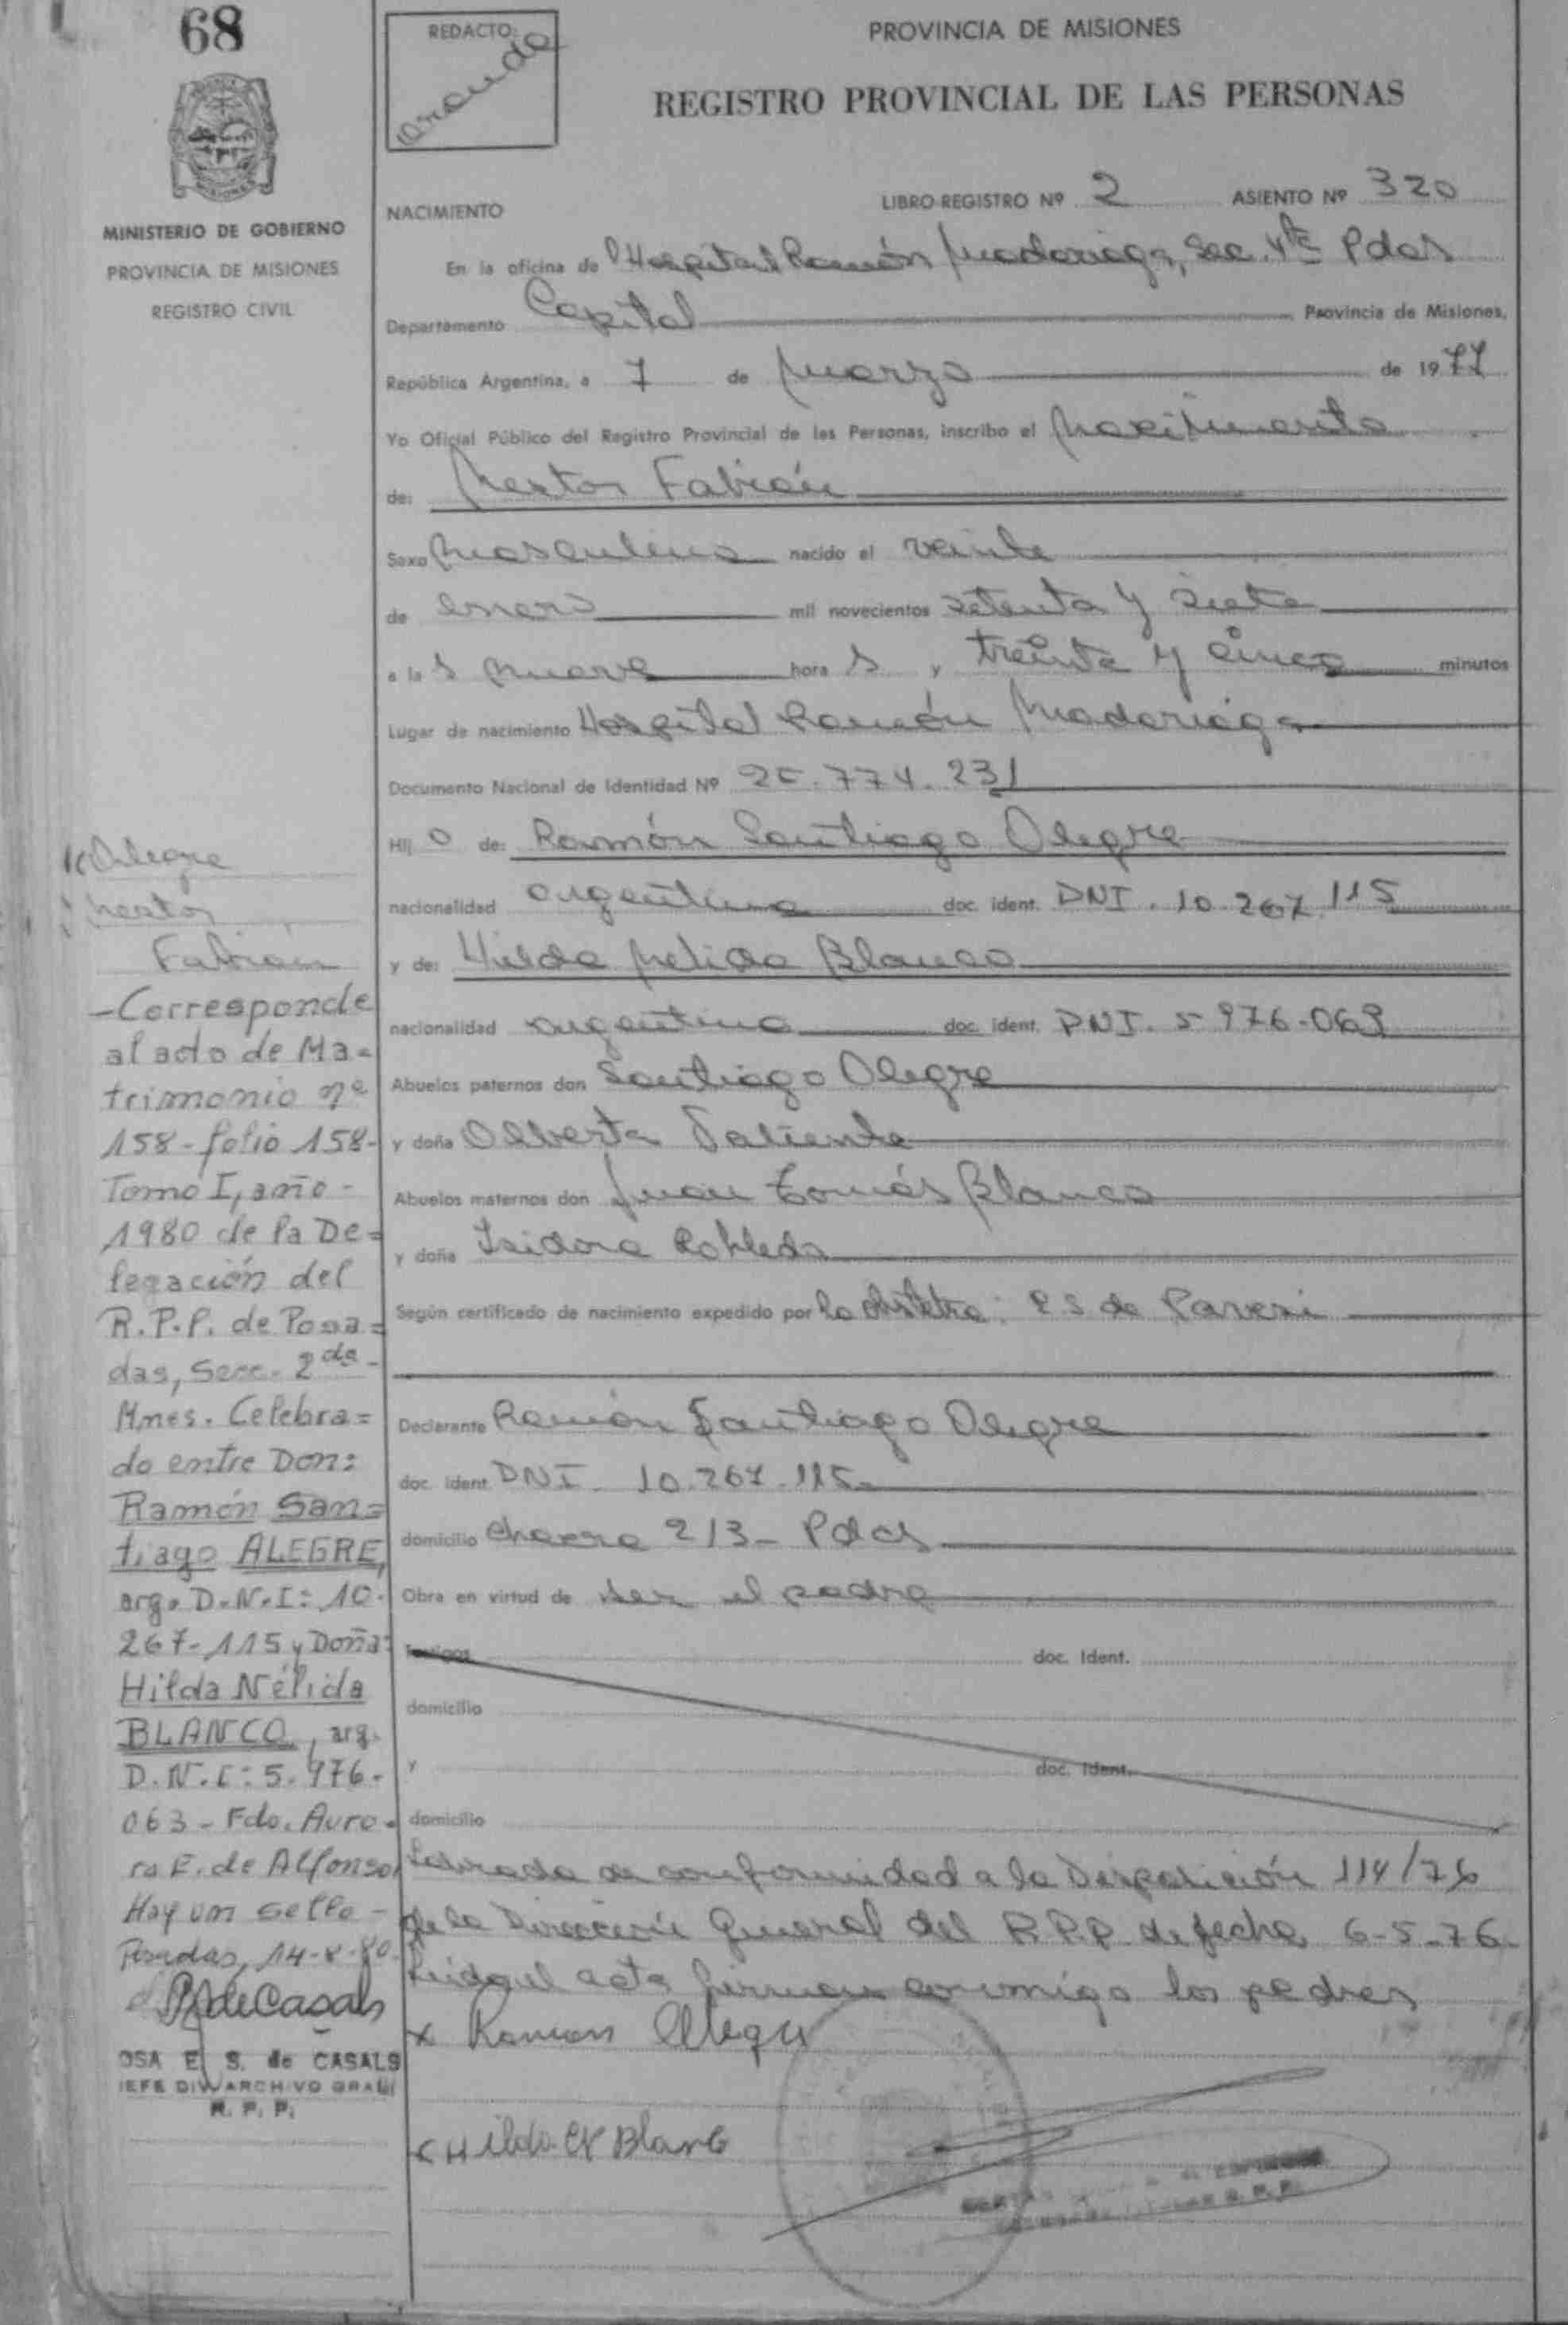 68
REDACTO:
PROVINCIA DE MISIONES
REGISTRO PROVINCIAL DE LAS PERSONAS
MINISTERIO DE GOBIERNO
PROVINCIA DE MISIONES
REGISTRO CIVIL
NACIMIENTO
LIBRO-REGISTRO Nº 2 ASIENTO Nº 320
En la oficina de Hospital Ramón Madariaga, Sec. 4ta Pdas
Departamento Capital Provincia de Misiones,
República Argentina, a 7 de Marzo de 1977
Yo Oficial Público del Registro Provincial de las Personas, inscribo el Nacimiento
de: Nestor Fabián
Sexo Masculino nacido el veinte
de enero mil novecientos setenta y siete
a las nueve horas y treinta y cinco minutos
Lugar de nacimiento Hospital Ramón Madariaga
Documento Nacional de Identidad Nº 774.231
Hijo de: Ramón Santiago Alegre
nacionalidad argentina doc. ident. DNI. 10.267.115
y de: Hilda Nelida Blanco
nacionalidad argentina doc. ident. DNI. 5 976.063
Abuelos paternos don Santiago Alegre
y doña Alberta
Abuelos maternos don Juan Tomás Blanco
y doña Isidora Robledo
Según certificado de nacimiento expedido por la obstetra: P.S de Paveri
Declarante Ramón Santiago Alegre
doc. ident. DNI. 10.267.115-
domicilio chacra 213- Pdas
Obra en virtud de ser el padre
Testigos doc. Ident.
domicilio
y doc. Ident.
domicilio
Labrada de conformidad a la Disposición 114/76
de la Dirección General del R.P.P. de fecha 6-5-76-
Leida el acta firman conmigo los padres
x Ramon Alegre
x Hilda N Blanco
Alegre
Nestor
Fabián
-Corresponde
al acto de Ma=
trimonio nº
158-folio 158-
Tomo I, año-
1980 de la De=
legación del
R.P.P. de Posa=
das, Secc. 2da-
Mnes. Celebra=
do entre Don:
Ramón San=
tiago ALEGRE,
arg. D.N.I: 10.
267-115 y Doña:
Hilda Nélida
BLANCO, arg.
D.N.I: 5.976-
063- Fdo. Auro-
ra E. de Alfonso.
Hay un sello-
Posadas, 14-8-80.
RdeCasals
OSA E. S. de CASALS
JEFE DIV. ARCHIVO GRAL
R. P. P.